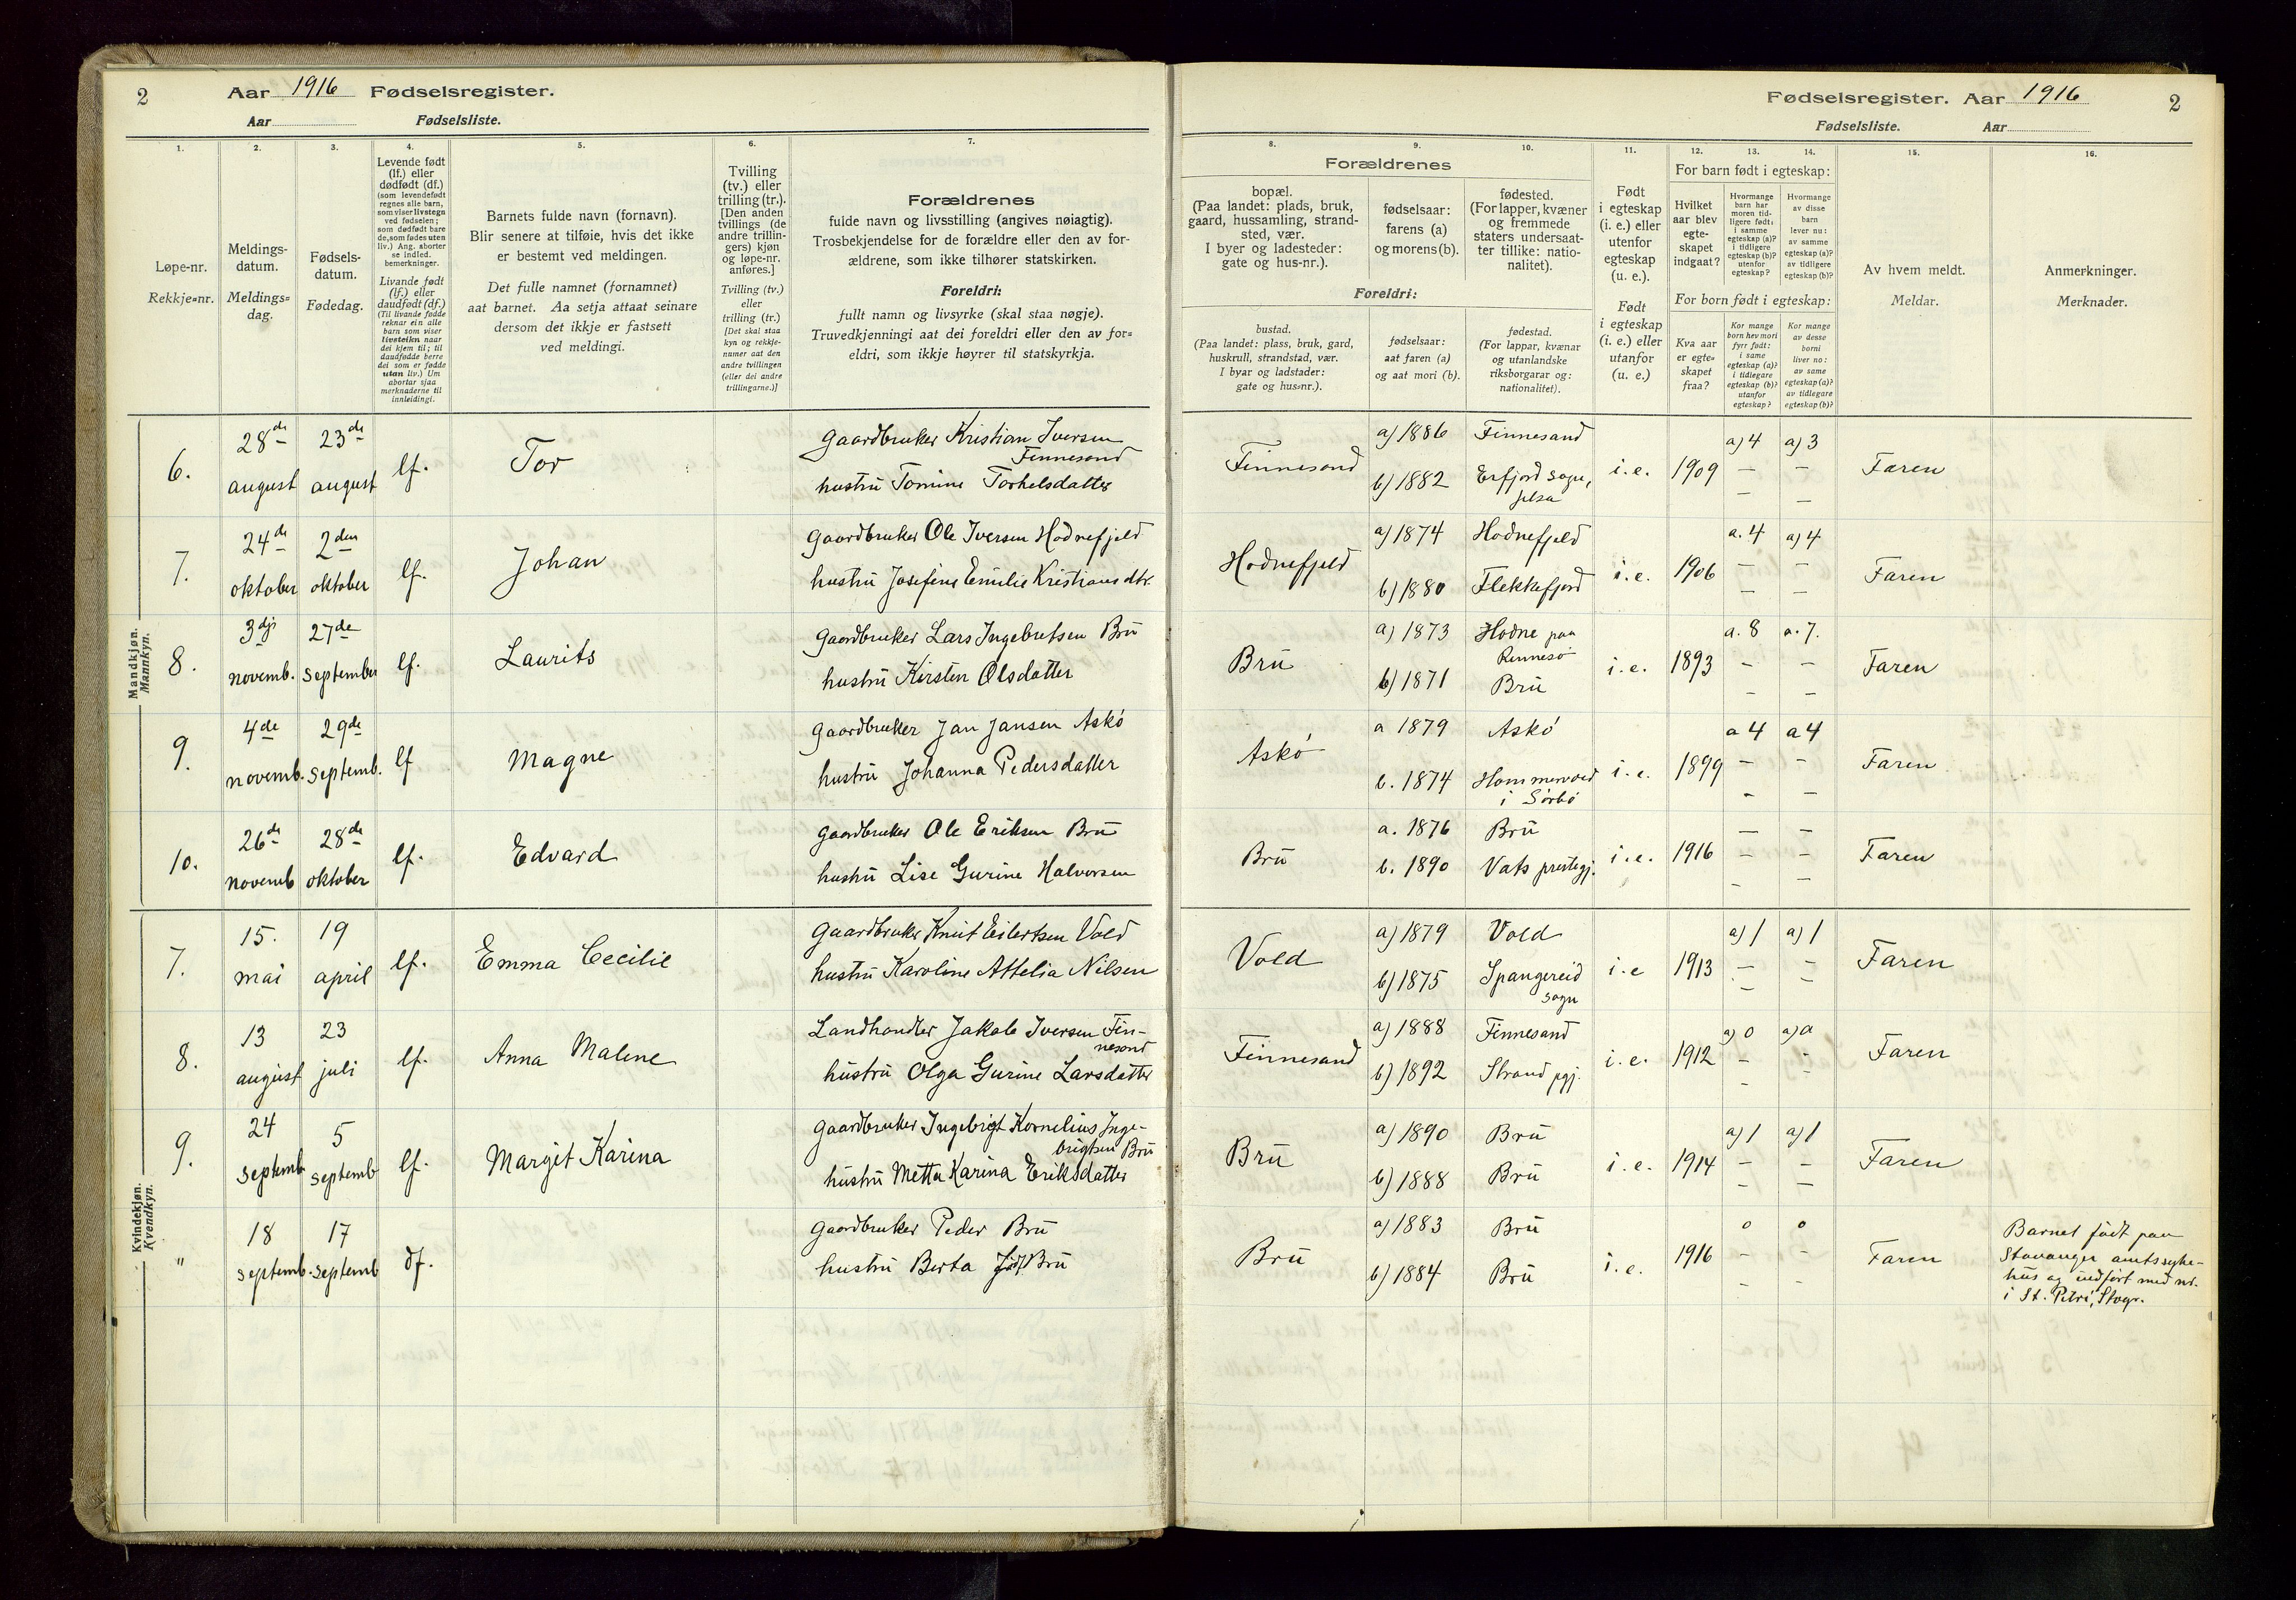 2 Aar 1916 Fødselsregister.
Aar Fødselsliste.
Fødselsregister. Aar 1916 2
Fødselsliste. Aar
1. 2. 3. 4. 5. 6. 7.
Løpe-nr.
Rekkje=nr.
Meldings-
datum.
Meldings=
dag.
Fødsels-
datum.
Fødedag.
Levende født
(lf.) eller
dødfødt (df.)
(som levendefødt
regnes alle barn,
som viser livstegn
ved fødselen;
som dødfødt bare
de, som fødes uten
liv.) Ang. aborter
se indled.
bemerkninger.
Livande født
(lf.) eller
daudfødt (df.)
(Til livande fødde
reknar ein alle
barn som viser
livsteikn naar
dei kjem til; til
daudfødde berre
dei som er fødde
utan liv.) Um
abortar sjaa
merknaderne til
innleidingi.
Barnets fulde navn (fornavn).
Blir senere at tilføie, hvis det ikke
er bestemt ved meldingen.
Det fulle namnet (fornamnet)
aat barnet. Aa setja attaat seinare
dersom det ikkje er fastsett
ved meldingi.
Tvilling
(tv.) eller
trilling (tr.).
[Den anden
tvillings (de
andre trillin-
gers) kjøn
og løpe-nr.
anføres.]
Tvilling (tv.)
eller
trilling (tr.)
[Det skal staa
kyn og rekkje-
numer aat den
andre tvillingen
(eller dei andre
trillingarne.)]
Forældrenes
fulde navn og livsstilling (angives nøiagtig).
Trosbekjendelse for de forældre eller den av for-
ældrene, som ikke tilhører statskirken.
Foreldri:
fullt namn og livsyrke (skal staa nøgje).
Truvedkjenningi aat dei foreldri eller den av for=
eldri, som ikkje høyrer til statskyrkja.
8. 9. 10. 11. 12. 13. 14. 15. 16.
Forældrenes
bopæl.
(Paa landet: plads, bruk,
gaard, hussamling, strand-
sted, vær.
I byer og ladesteder:
gate og hus-nr.).
fødselsaar:
farens (a)
og morens (b).
fødested.
(For lapper, kvæner
og fremmede
staters undersaat-
ter tillike: natio-
nalitet).
Foreldri:
bustad.
(Paa landet: plass, bruk, gard,
huskrull, strandstad, vær.
I byar og ladstader:
gate og hus=nr.).
fødselsaar:
aat faren (a)
og aat mori (b).
fødestad.
(For lappar, kvænar
og utanlandske
riksborgarar og:
nationalitet).
Født
i egteskap
(i. e.) eller
utenfor
egteskap
(u. e.).
Født
i egteskap
(i. e.) eller
utanfor
(u. e.)
For barn født i egteskap:
Hvilket
aar blev
egte-
skapet
indgaat?
Hvormange
barn har
moren tid-
ligere født:
i samme
egteskap (a)?
i tidligere
egteskap (b)?
utenfor
egteskap?
Hvormange
av disse
barn
lever nu:
av samme
egteskap (a)?
av tidligere
egteskap (b)?
For born født i egteskap:
Kva aar
er egte=
skapet
fraa?
Kor mange
born hev mori
fyrr født:
i same
egteskap (a)?
i tidlegare
egteskap (b)?
utanfor
egteskap?
Kor mange
av desse
borni
liver no:
av same
egteskap (a)?
av tidlegare
egteskap (b)?
Av hvem meldt.
Meldar.
Anmerkninger.
Merknader.
Mandkjøn.
Mannkyn.
6. 28de august 23de august lf. Tor
Gaardbruker Kristian Iversen
Finnesand
hustru Tomine Torkelsdatter
Finnesand a) 1886 Finnesand
b) 1882 Erfjord sogn,
Jelsa
i. e. 1909 a) 4 a) 3 Faren
7. 24de oktober 2den oktober lf. Johan
Gaardbruker Ole Iversen Hodnefjeld
hustru Josefine Emilie Kristiansdtr.
Hodnefjeld a) 1874 Hodnefjeld
b) 1880 Flekkefjord
i. e. 1906 a. 4 a) 4 Faren
8. 3dje novemb. 27de september lf. Laurits
Gaardbruker Lars Ingebretsen Bru
hustru Kirsten Olsdatter
Bru a) 1873 Hodne paa
Rennesø
b) 1871 Bru
i. e. 1893 a. 8 a. 7. Faren
9. 4de novemb. 29de septemb. lf Magne
Gaardbruker Jan Jansen Askø
hustru Johanna Pedersdatter
Askø a 1879 Askø
b. 1874 Hammervold
i Sørbø
i. e. 1899 a 4 a 4 Faren
10. 26de novemb 28de oktober lf. Edvard
Gaardbruker Ole Eriksen Bru
hustru Lise Gurine Halvorsen
Bru a. 1876 Bru
b. 1890 Vats prestegj.
i. e. 1916 — — Faren
Kvindekjøn.
Kvendkyn.
7. 15. mai 19 april lf. Emma Cecilie
Gaardbruker Knut Eilertsen Vold
hustru Karoline Attelia Nilsen
Vold a) 1879 Vold
b) 1875 Spangereid
sogn
i. e 1913 a) 1 a) 1 Faren
8. 13 august 23 juli lf. Anna Malene
Landhandler Jakob Iversen Fin-
nesand
hustru Olga Gurine Larsdatter
Finnesand a) 1888 Finnesand
b) 1892 Strand pgj.
i. e. 1912 a) 0 a) 0 Faren
9. 24 septemb 5 septemb lf. Margit Karina
Gaardbruker Ingebrigt Kornelius Inge-
brigtsen Bru
hustru Metta Karina Eriksdatter
Bru a) 1890 Bru
b) 1888 Bru
i. e. 1914 a) 1 a) 1 Faren
" 18 septemb. 17 septemb df.
Gaardbruker Peder Bru
hustru Berta født Bru
Bru a) 1883 Bru
b) 1884 Bru
i. e. 1916 0 0 Faren
Barnet født paa
Stavanger amtssyke-
hus og indført med nr.
i St. Petri, Stvgr.